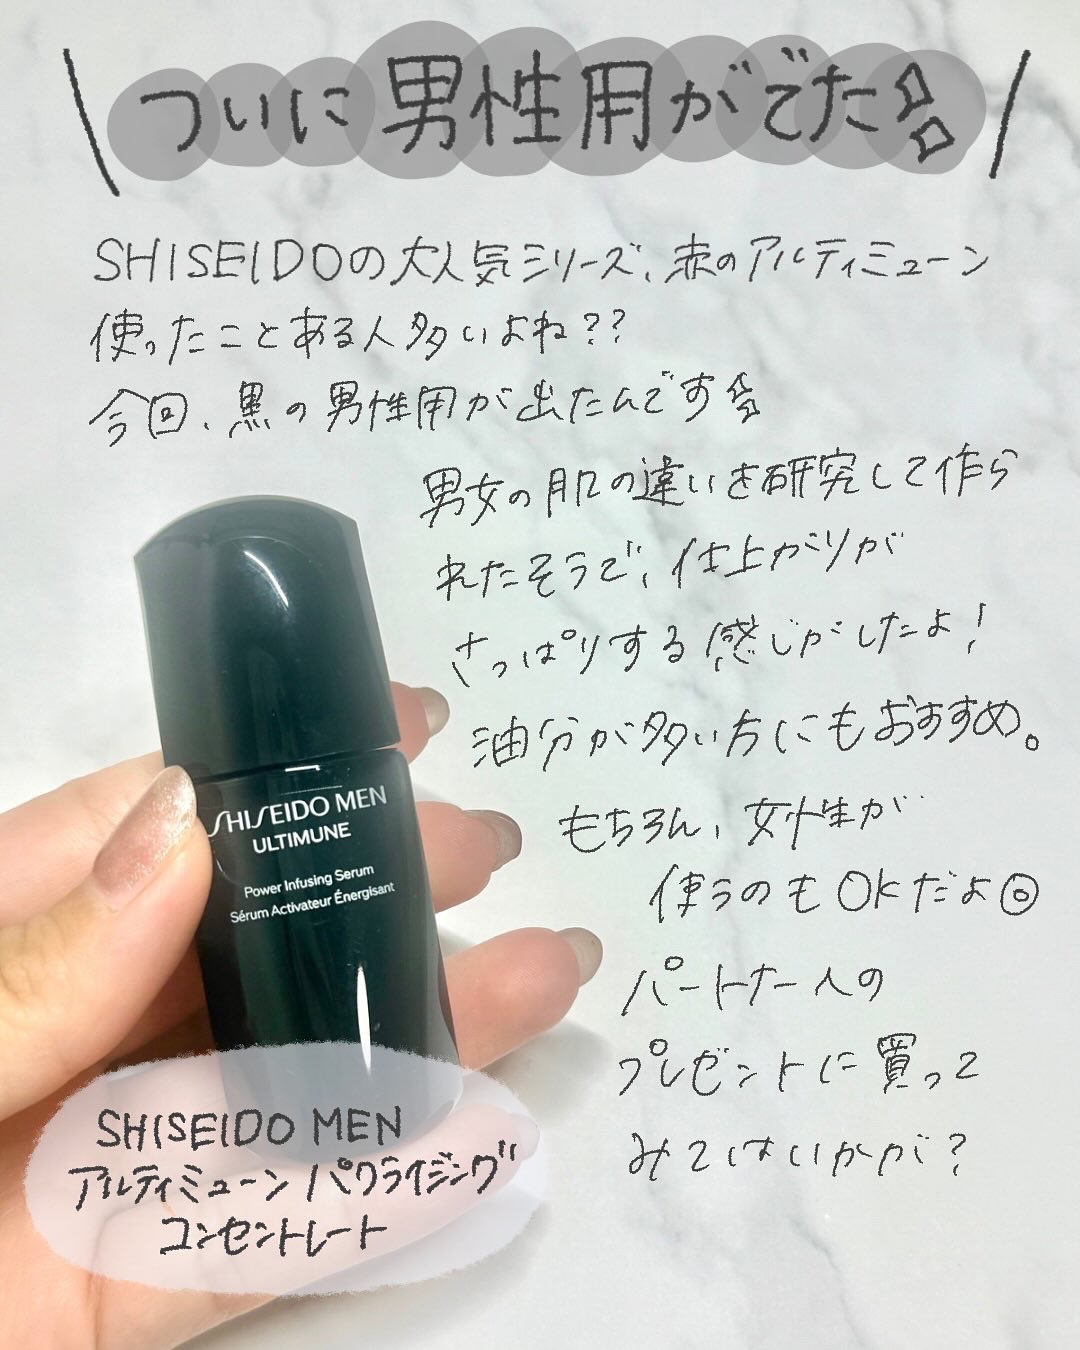 \ ついに男性用がでた /
SHISEIDOの大人気シリーズ、赤のアルティミューン
使ったことある人多いよね??
今回、黒の男性用が出たんです
男女の肌の違いを研究して作ら
れたそうで、仕上がりが
さっぱりする感じがしたよ!
油分が多い方にもおすすめ。
もちろん、女性が
使うのもOKだよ◎
パートナーへの
プレゼントに買って
みてはいかが?
SHISEIDO MEN
ULTIMUNE
Power Infusing Serum
Sérum Activateur Énergisant
SHISEIDO MEN
アルティミューン パワライジング
コンセントレート